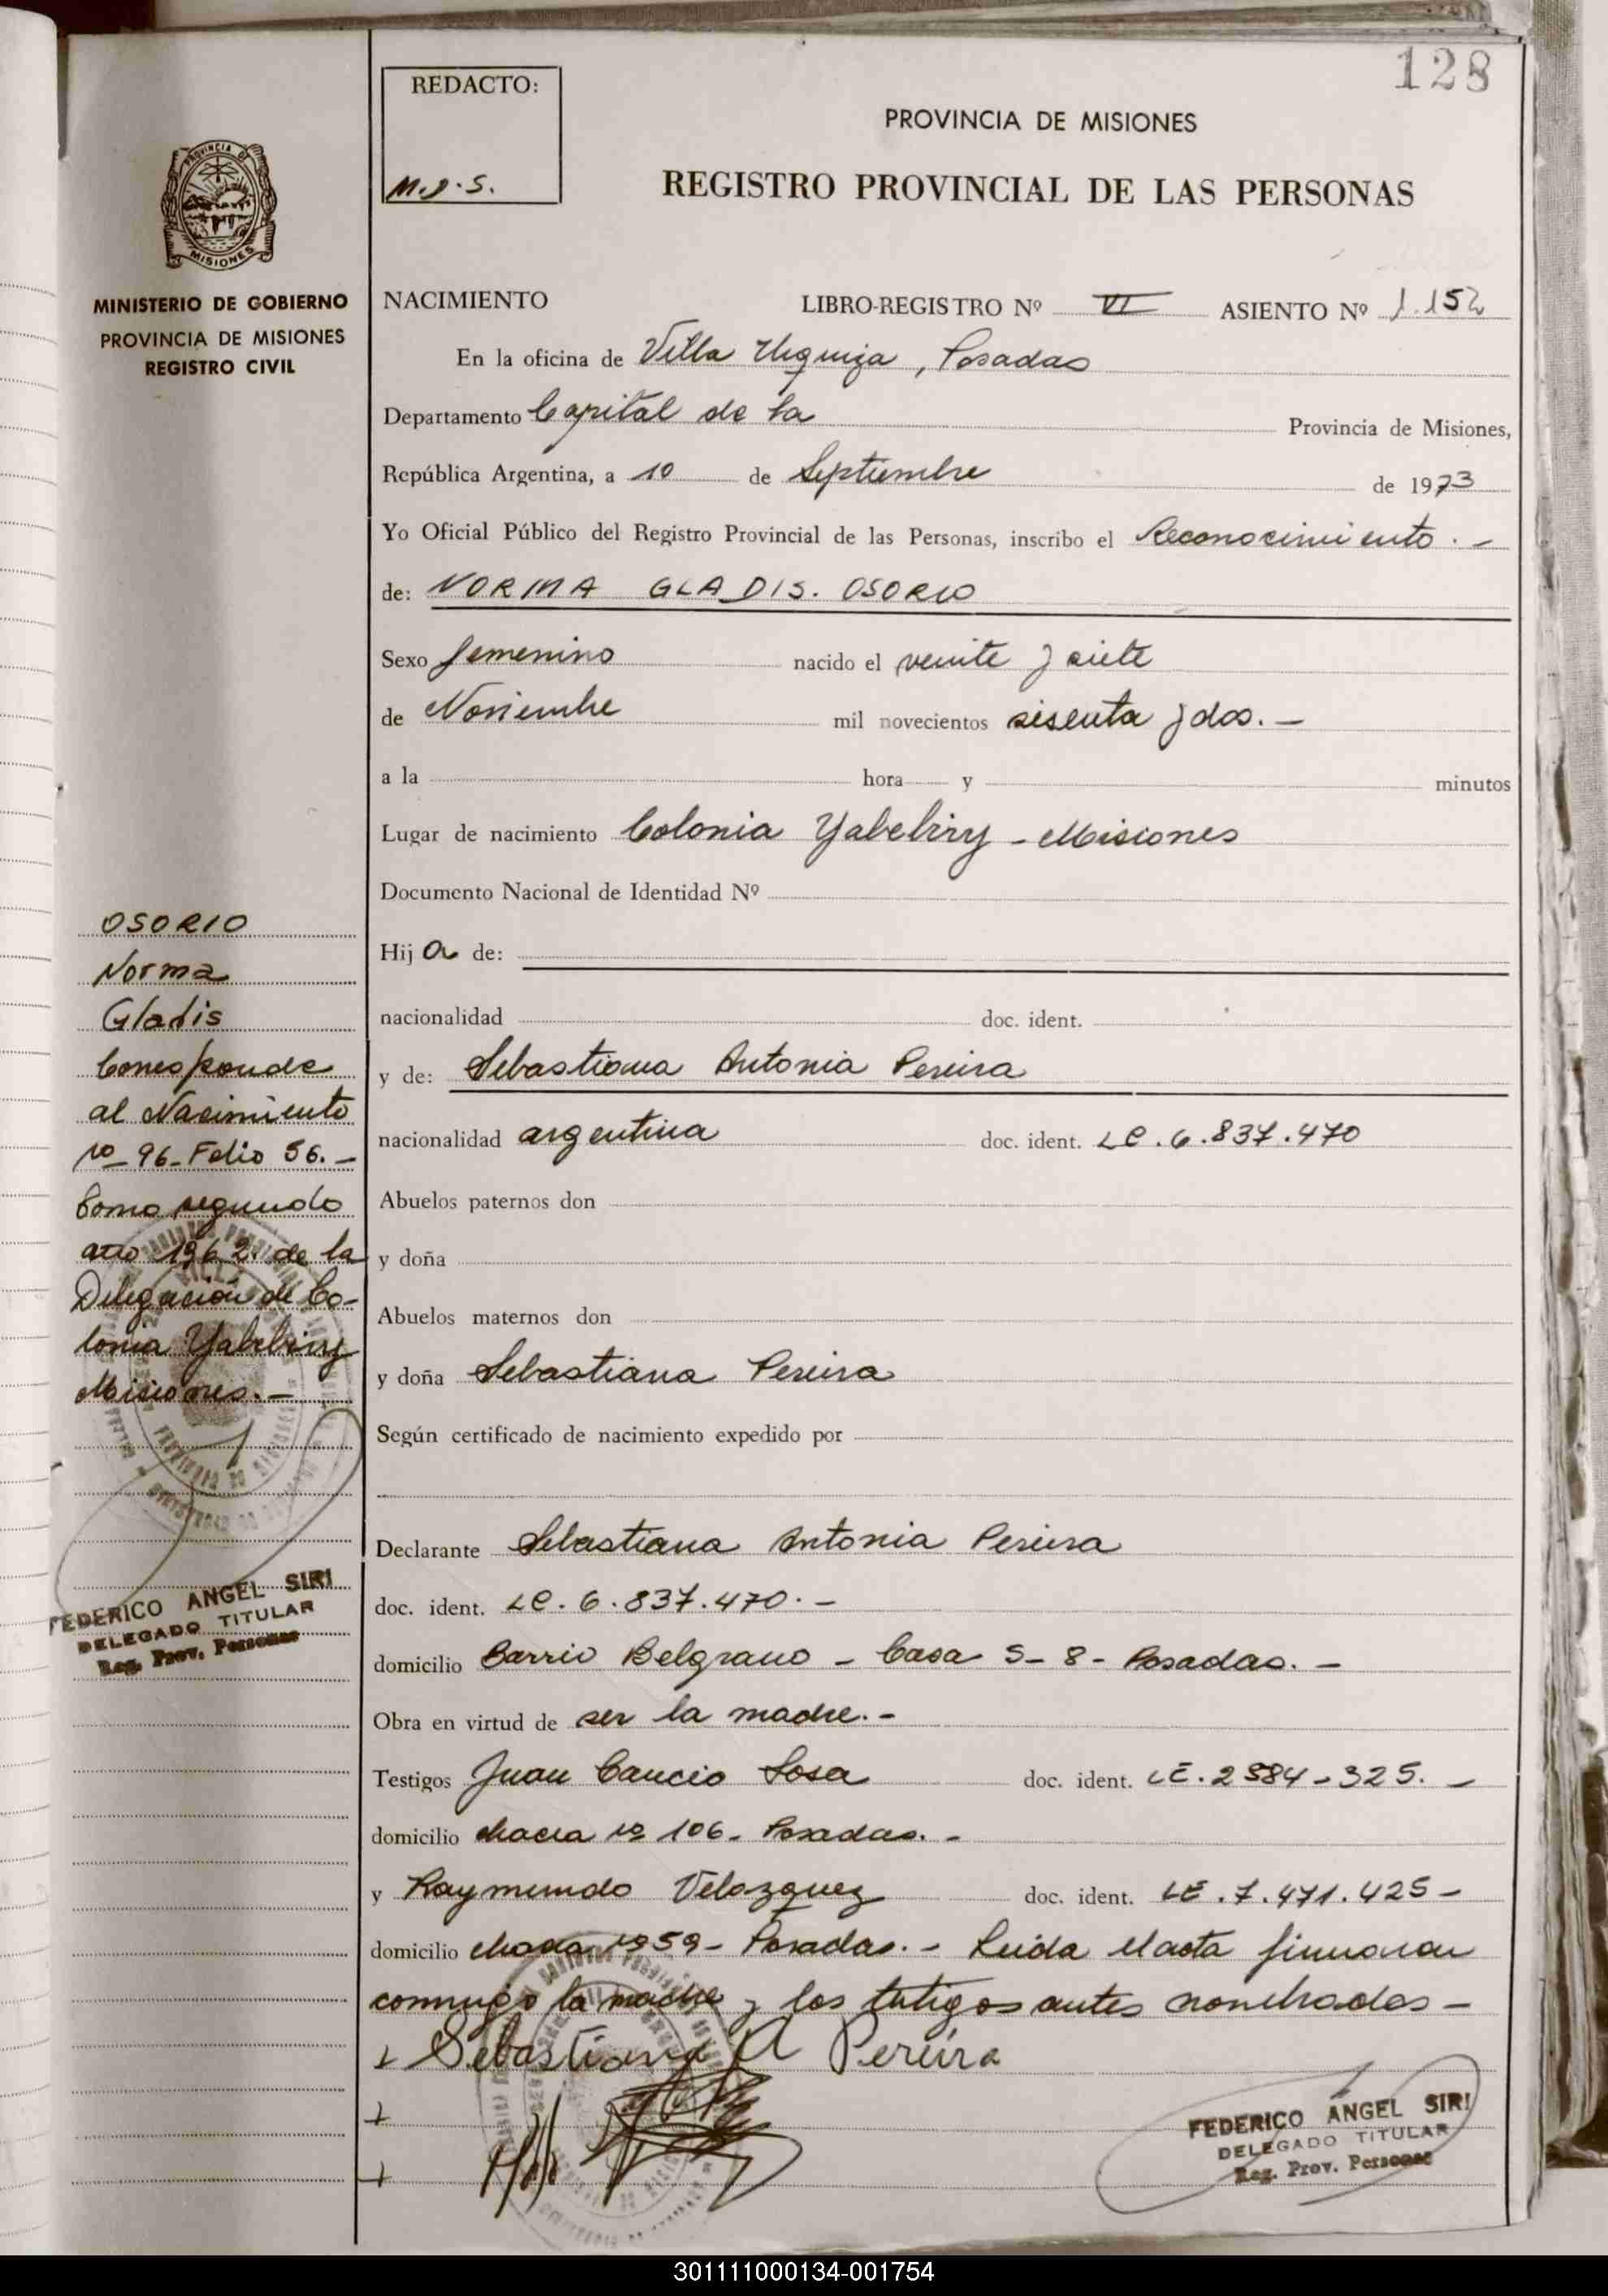 128
REDACTO:
M.J.S.
PROVINCIA DE MISIONES
REGISTRO PROVINCIAL DE LAS PERSONAS
PROVINCIA DE
MISIONES
MINISTERIO DE GOBIERNO
PROVINCIA DE MISIONES
REGISTRO CIVIL
NACIMIENTO LIBRO-REGISTRO Nº VI ASIENTO Nº 1.152
En la oficina de Villa Urquiza, Posadas
Departamento Capital de la Provincia de Misiones,
República Argentina, a 10 de Septiembre de 1973
Yo Oficial Público del Registro Provincial de las Personas, inscribo el Reconocimiento.-
de: NORMA GLADIS. OSORIO
Sexo femenino nacido el veinte y siete
de Noviembre mil novecientos sesenta y dos.-
a la hora y minutos
Lugar de nacimiento Colonia Yabebiry - Misiones
Documento Nacional de Identidad Nº
Hija de:
nacionalidad doc. ident.
y de: Sebastiana Antonia Pereira
nacionalidad argentina doc. ident. LC.6.837.470
Abuelos paternos don
y doña
Abuelos maternos don
y doña Sebastiana Pereira
Según certificado de nacimiento expedido por
Declarante Sebastiana Antonia Pereira
doc. ident. LC.6.837.470.-
domicilio Barrio Belgrano - Casa S-8- Posadas.-
Obra en virtud de ser la madre.-
Testigos Juan Cancio Sosa doc. ident. LE.2584-325.-
domicilio chacra nº 106- Posadas.-
y Raymundo Velazquez doc. ident. LE.7.471.425-
domicilio chacra nº59- Posadas.- Leida el acta firmaron
conmigo la madre y los testigos antes nombrados-
Sebastiana A Pereira
FEDERICO ANGEL SIRI
DELEGADO TITULAR
Reg. Prov. Personas
OSORIO
Norma
Gladis
Corresponde
al Nacimiento
nº 96-Folio 56.-
Tomo segundo
año 1962. de la
Delegación de Co-
lonia Yabebiry
Misiones.-
FEDERICO ANGEL SIRI
DELEGADO TITULAR
Reg. Prov. Personas
301111000134-001754